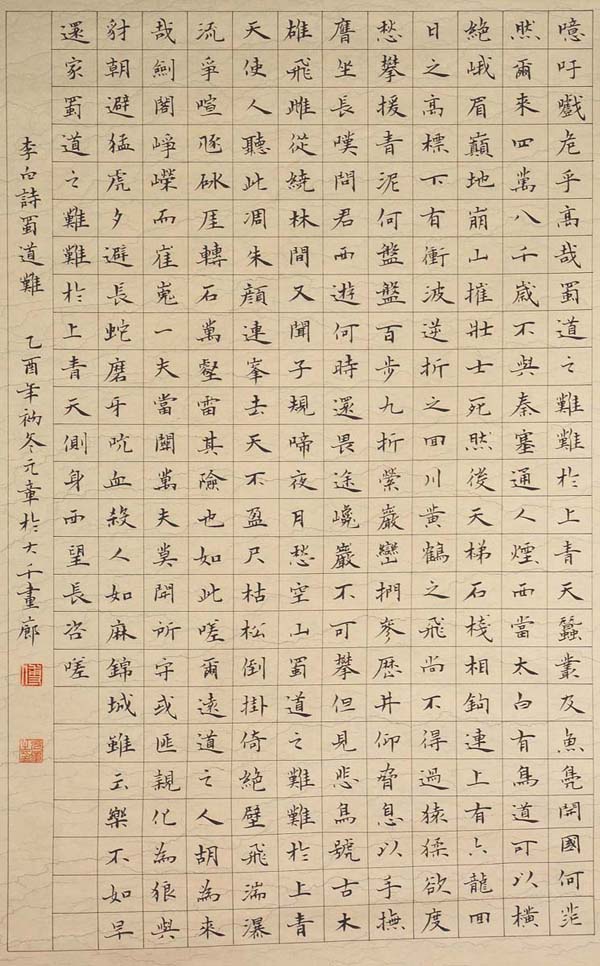 噫吁戲危乎高哉蜀道之難難於上青天蠶叢及魚鳧開國何茫
然爾來四萬八千歲不與秦塞通人煙西當太白有鳥道可以橫
絕峨眉巔地崩山摧壯士死然後天梯石棧相鉤連上有六龍回
日之高標下有衝波逆折之回川黃鶴之飛尚不得過猿猱欲度
愁攀援青泥何盤盤百步九折縈巖巒捫參歷井仰脅息以手撫
膺坐長嘆問君西遊何時還畏途巉巖不可攀但見悲鳥號古木
雄飛雌從繞林間又聞子規啼夜月愁空山蜀道之難難於上青
天使人聽此凋朱顏連峯去天不盈尺枯松倒掛倚絕壁飛湍瀑
流爭喧豗砯厓轉石萬壑雷其險也如此嗟爾遠道之人胡為來
哉劍閣崢嶸而崔嵬一夫當關萬夫莫開所守或匪親化為狼與
豺朝避猛虎夕避長蛇磨牙吮血殺人如麻錦城雖云樂不如早
還家蜀道之難難於上青天側身西望長咨嗟
李白詩蜀道難 乙酉年初冬元章於大千畫廊